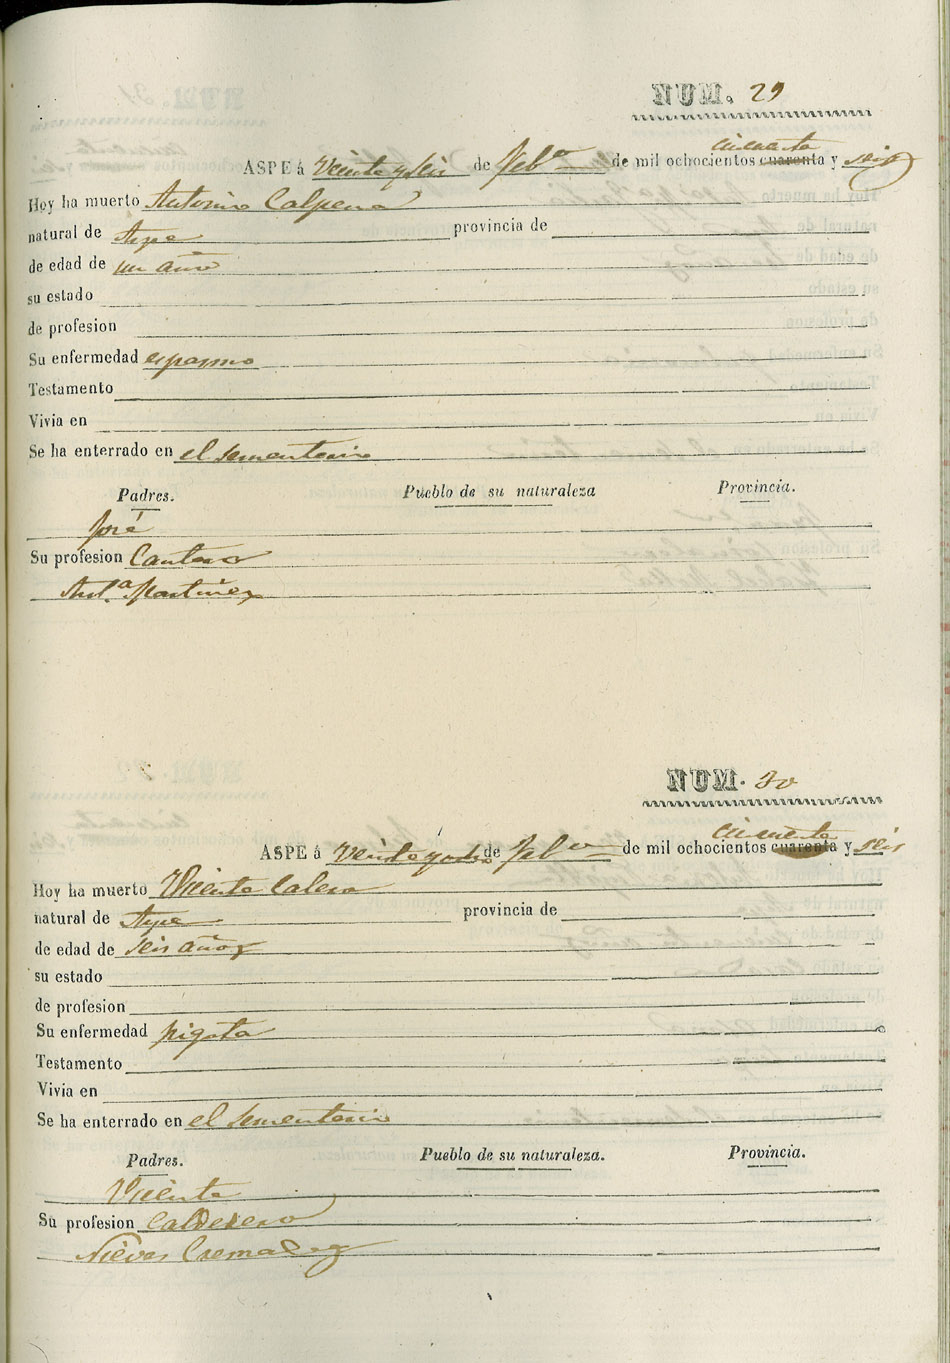 NUM. 29
cincuenta
ASPE á Veinte y seis de Feb.º de mil ochocientos cuarenta y seis
Hoy ha muerto Antonio Calpena
natural de Aspe provincia de
de edad de un año
su estado
de profesion
Su enfermedad espasmo
Testamento
Vivia en
Se ha enterrado en el sementerio
Padres. Pueblo de su naturaleza Provincia.
José
Su profesion Cantero
Ant.ª Martinez
NUM. 30
cincuenta
ASPE á Veinte y de Feb.º de mil ochocientos cuarenta y seis
Hoy ha muerto Vicente Calero
natural de Aspe provincia de
de edad de seis años
su estado
de profesion
Su enfermedad pigota
Testamento
Vivia en
Se ha enterrado en el sementerio
Padres. Pueblo de su naturaleza. Provincia.
Vicente
Su profesion Calderero
Nieves Cremades